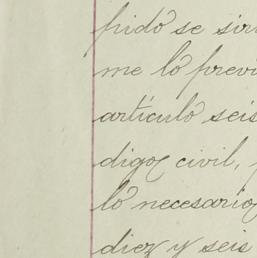 pido se sir
me lo previ
artículo seis
digo civil,
lo necesario
diez y seis